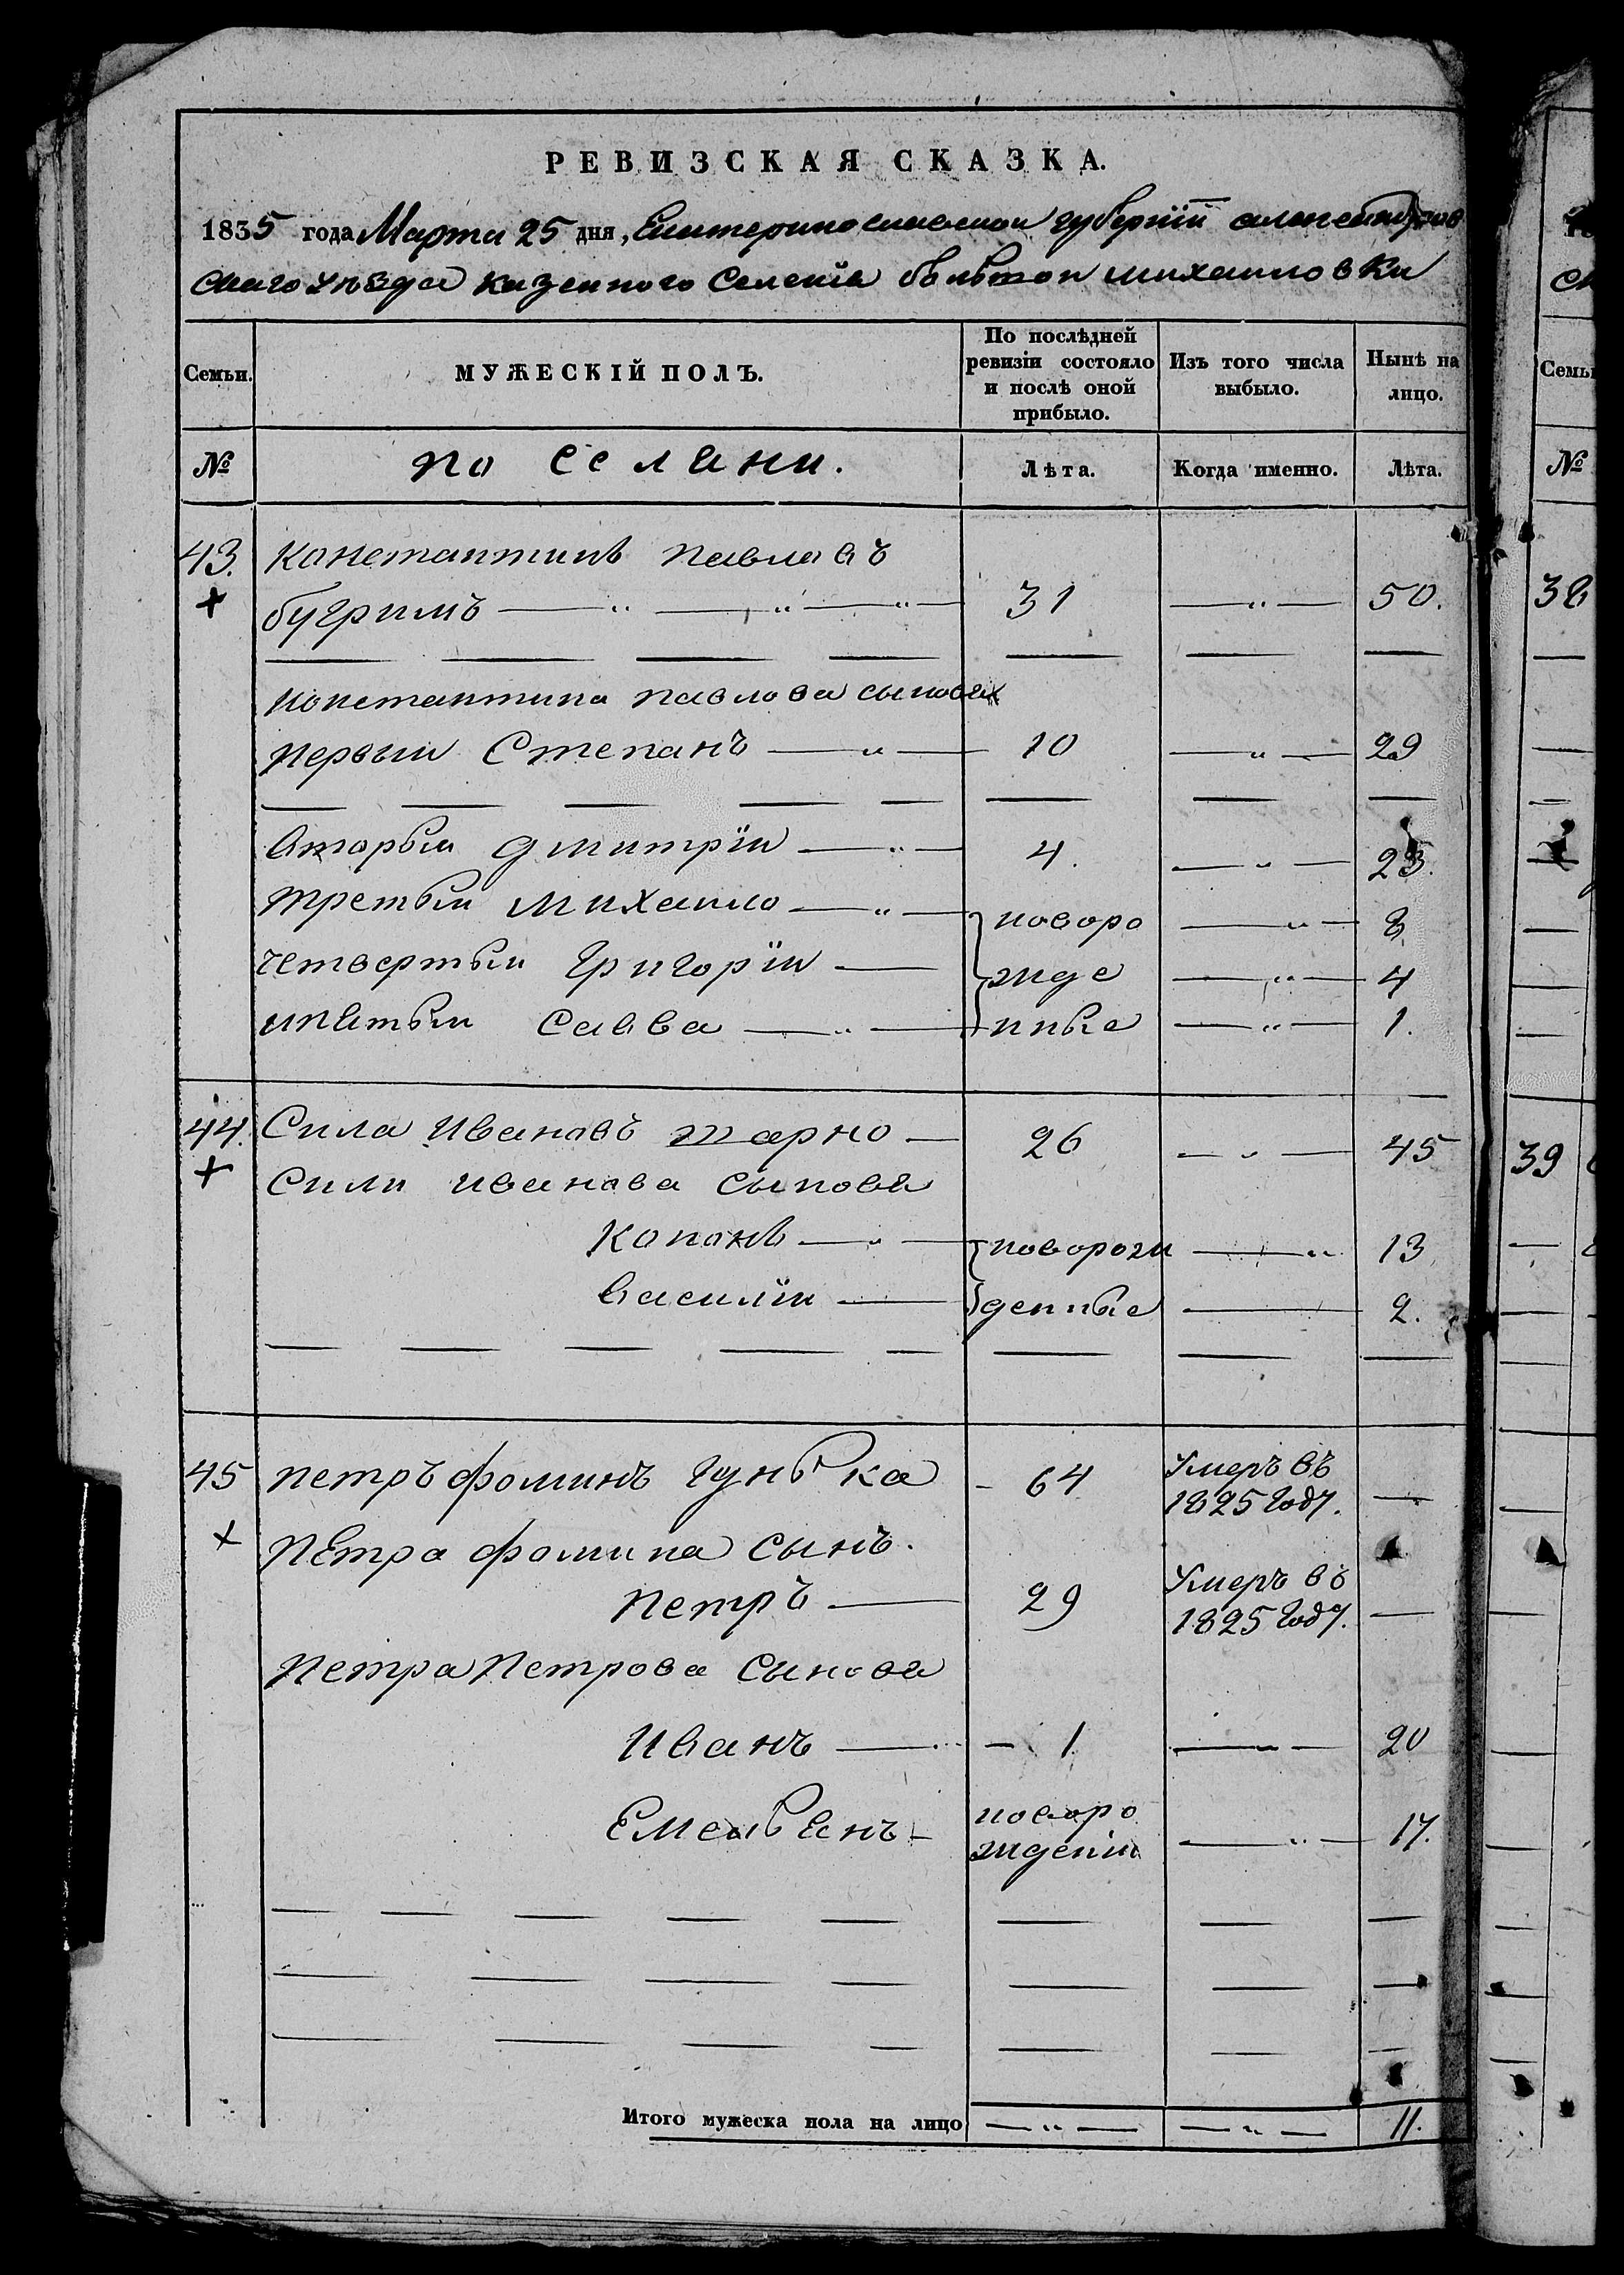 РЕВИЗСКАЯ СКАЗКА.
1835 года Марта 25 дня, Екатеринославской губернїй александров
скаго уѣзда казенного Селенїя большой михайловки
Семьи.
МУЖЕСКІЙ ПОЛЪ.
По послѣдней ревизіи состояло и послѣ оной прибыло.
Изъ того числа выбыло.
Нынѣ на лицо.
№
поселяни.
Лѣта.
Когда именно.
Лѣта.
43. Константинъ павлавъ
бугримъ 31 50.
константина павлова сыновя
первыи Степанъ 10 29
вторыи дмитрїи 4. 23.
третьи михаило новоро 8
четвертыи григорїи жде 4
пятыи Савва нные 1.
44. Сила Ивановъ жарко 26 45
Сили иванова сыновя
Конанъ новорож 13
василїи денные 2.
45 петръ фоминъ гунька 64 Умеръ въ 1825 году.
петра фомина сынъ.
петръ 29 Умеръ въ 1825 году.
петра петрова сыновя
Иванъ 1 20
Емельянъ новоро жденїи 17.
Итого мужеска пола на лицо 11.
Семьи
№
38
39